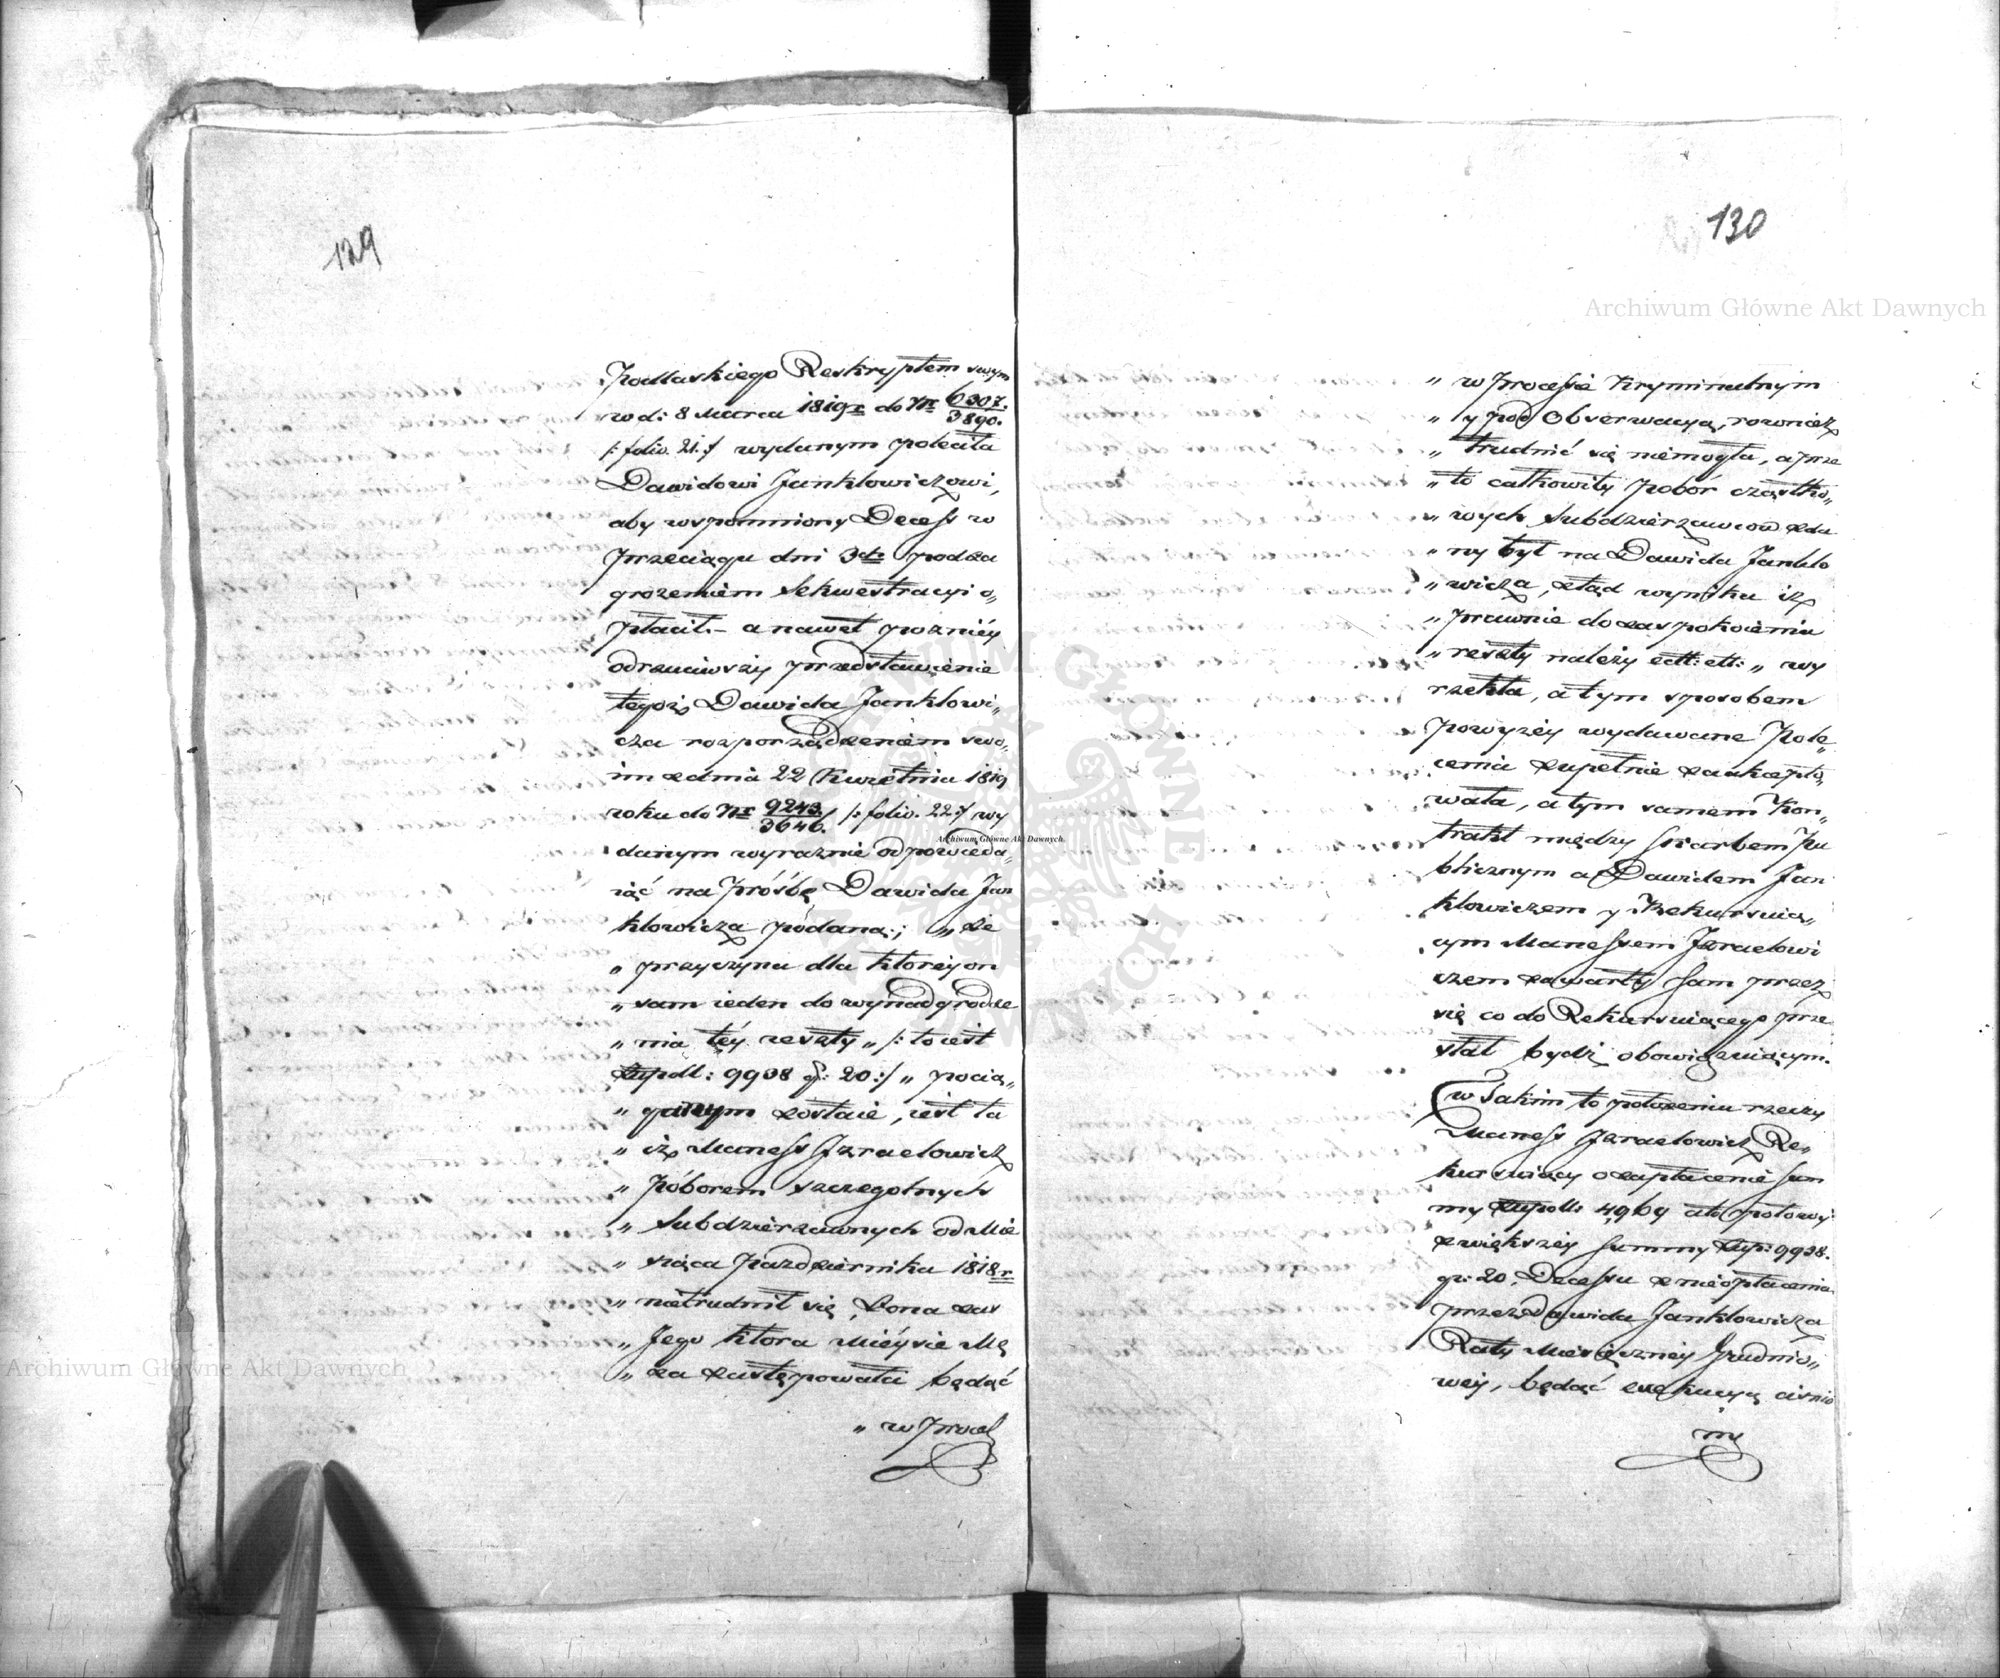 129
Podlaskiego Reskryptem swym
w d: 8 Marca 1819 r. do Nr 6307/3890.
/: folio. 21. :/ wydanym poleciła
Dawidowi Jankłowiczowi,
aby wspomniony Decess w
przeciągu dni 3ch podza
grożeniem Sekwestracyi o„
płacił. – a nawet pozniéy
odrzuciwszy przedstawienie
tegoż Dawida Jankłowi„
cza rozporządzeniem swo„
im z dnia 22 Kwietnia 1819
roku do Nr 9243./3646. /: folio. 22. :/ wy
danym wyraznie odpowieda„
iąć na Prośbę Dawida Jan
kłowicza pódaną; „ że
„ przyczyna dla ktoréy on
„ sam ieden do wynadgrodze
„ nia téy reszty „ /: to iest
Zupoll: 9938 gr: 20 :/ „ pocią„
„ ganym zostaie, iest ta
„ iż Maness Izraelowicz
„ Póborem szczegolnych
„ Subdzierzawnych od Mie
„ siąca Pazdziernika 1818 r
„ nietrudnił się, Żona zas
„ Jego ktora Mieysie Mę
„ za zastępowała będąć
„ w Proces
130
„ w Processie Kryminalnym
„ y pod Obserwacyą, rownież
„ trudnić się niemogła, a prze
„ to całkowity Pobór cząstko„
„ wych Subdzierzawcow zda
„ ny był na Dawida Jankło
„ wicza, ztąd wynika iż
„ prawnie do zaspokoienia
„ reszty należy ett: ett: „ wy
rzekła, a tym sposobem
powyzéy wydawane Pole„
cenia zupełnie zaakcepto„
wała, a tym samem Kon„
trakt między Skarbem Pu
blicznym a Dawidem Jan
kłowiczem y Rekursuią„
cym Manessem Izraelowi
czem zawarty sam przez
się co do Rekursuiącego prze
stał bydź obowiązuiącym.
w Takim to położeniu rzeczy
Maness Izraelowicz Re„
kursuiący o zapłacenie Sum
my Zupoll: 4969 ato połowy
zwiększéy Summy Zup: 9938.
gr: 20. Decessu z nieopłacenia
przez Dawida Jankłowicza
Raty Miesięcznéy Grudnio„
wéy, będąć exekucyą cisnio
ny
Archiwum Główne Akt Dawnych
Archiwum Główne Akt Dawnych
Archiwum Główne Akt Dawnych